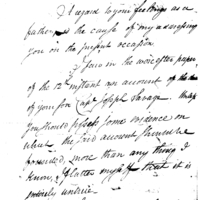 A regard to your feelings as a
father is the cause of my addressing
you on the present occasion
I saw in the
of the 12th instant an account of the
of your son Capt Joseph Savage
you should some evidence on
which the said account should be
founded, more than any thing I
know, I flatter myself that it is
entirely untrue